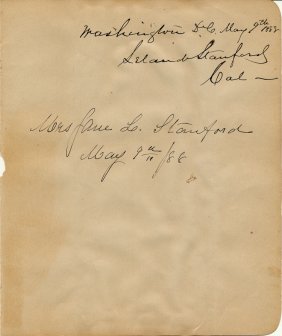 Washington D.C. May 9th 1888
Leland Stanford
Cal -
Mrs Jane L. Stanford
May 9th/88